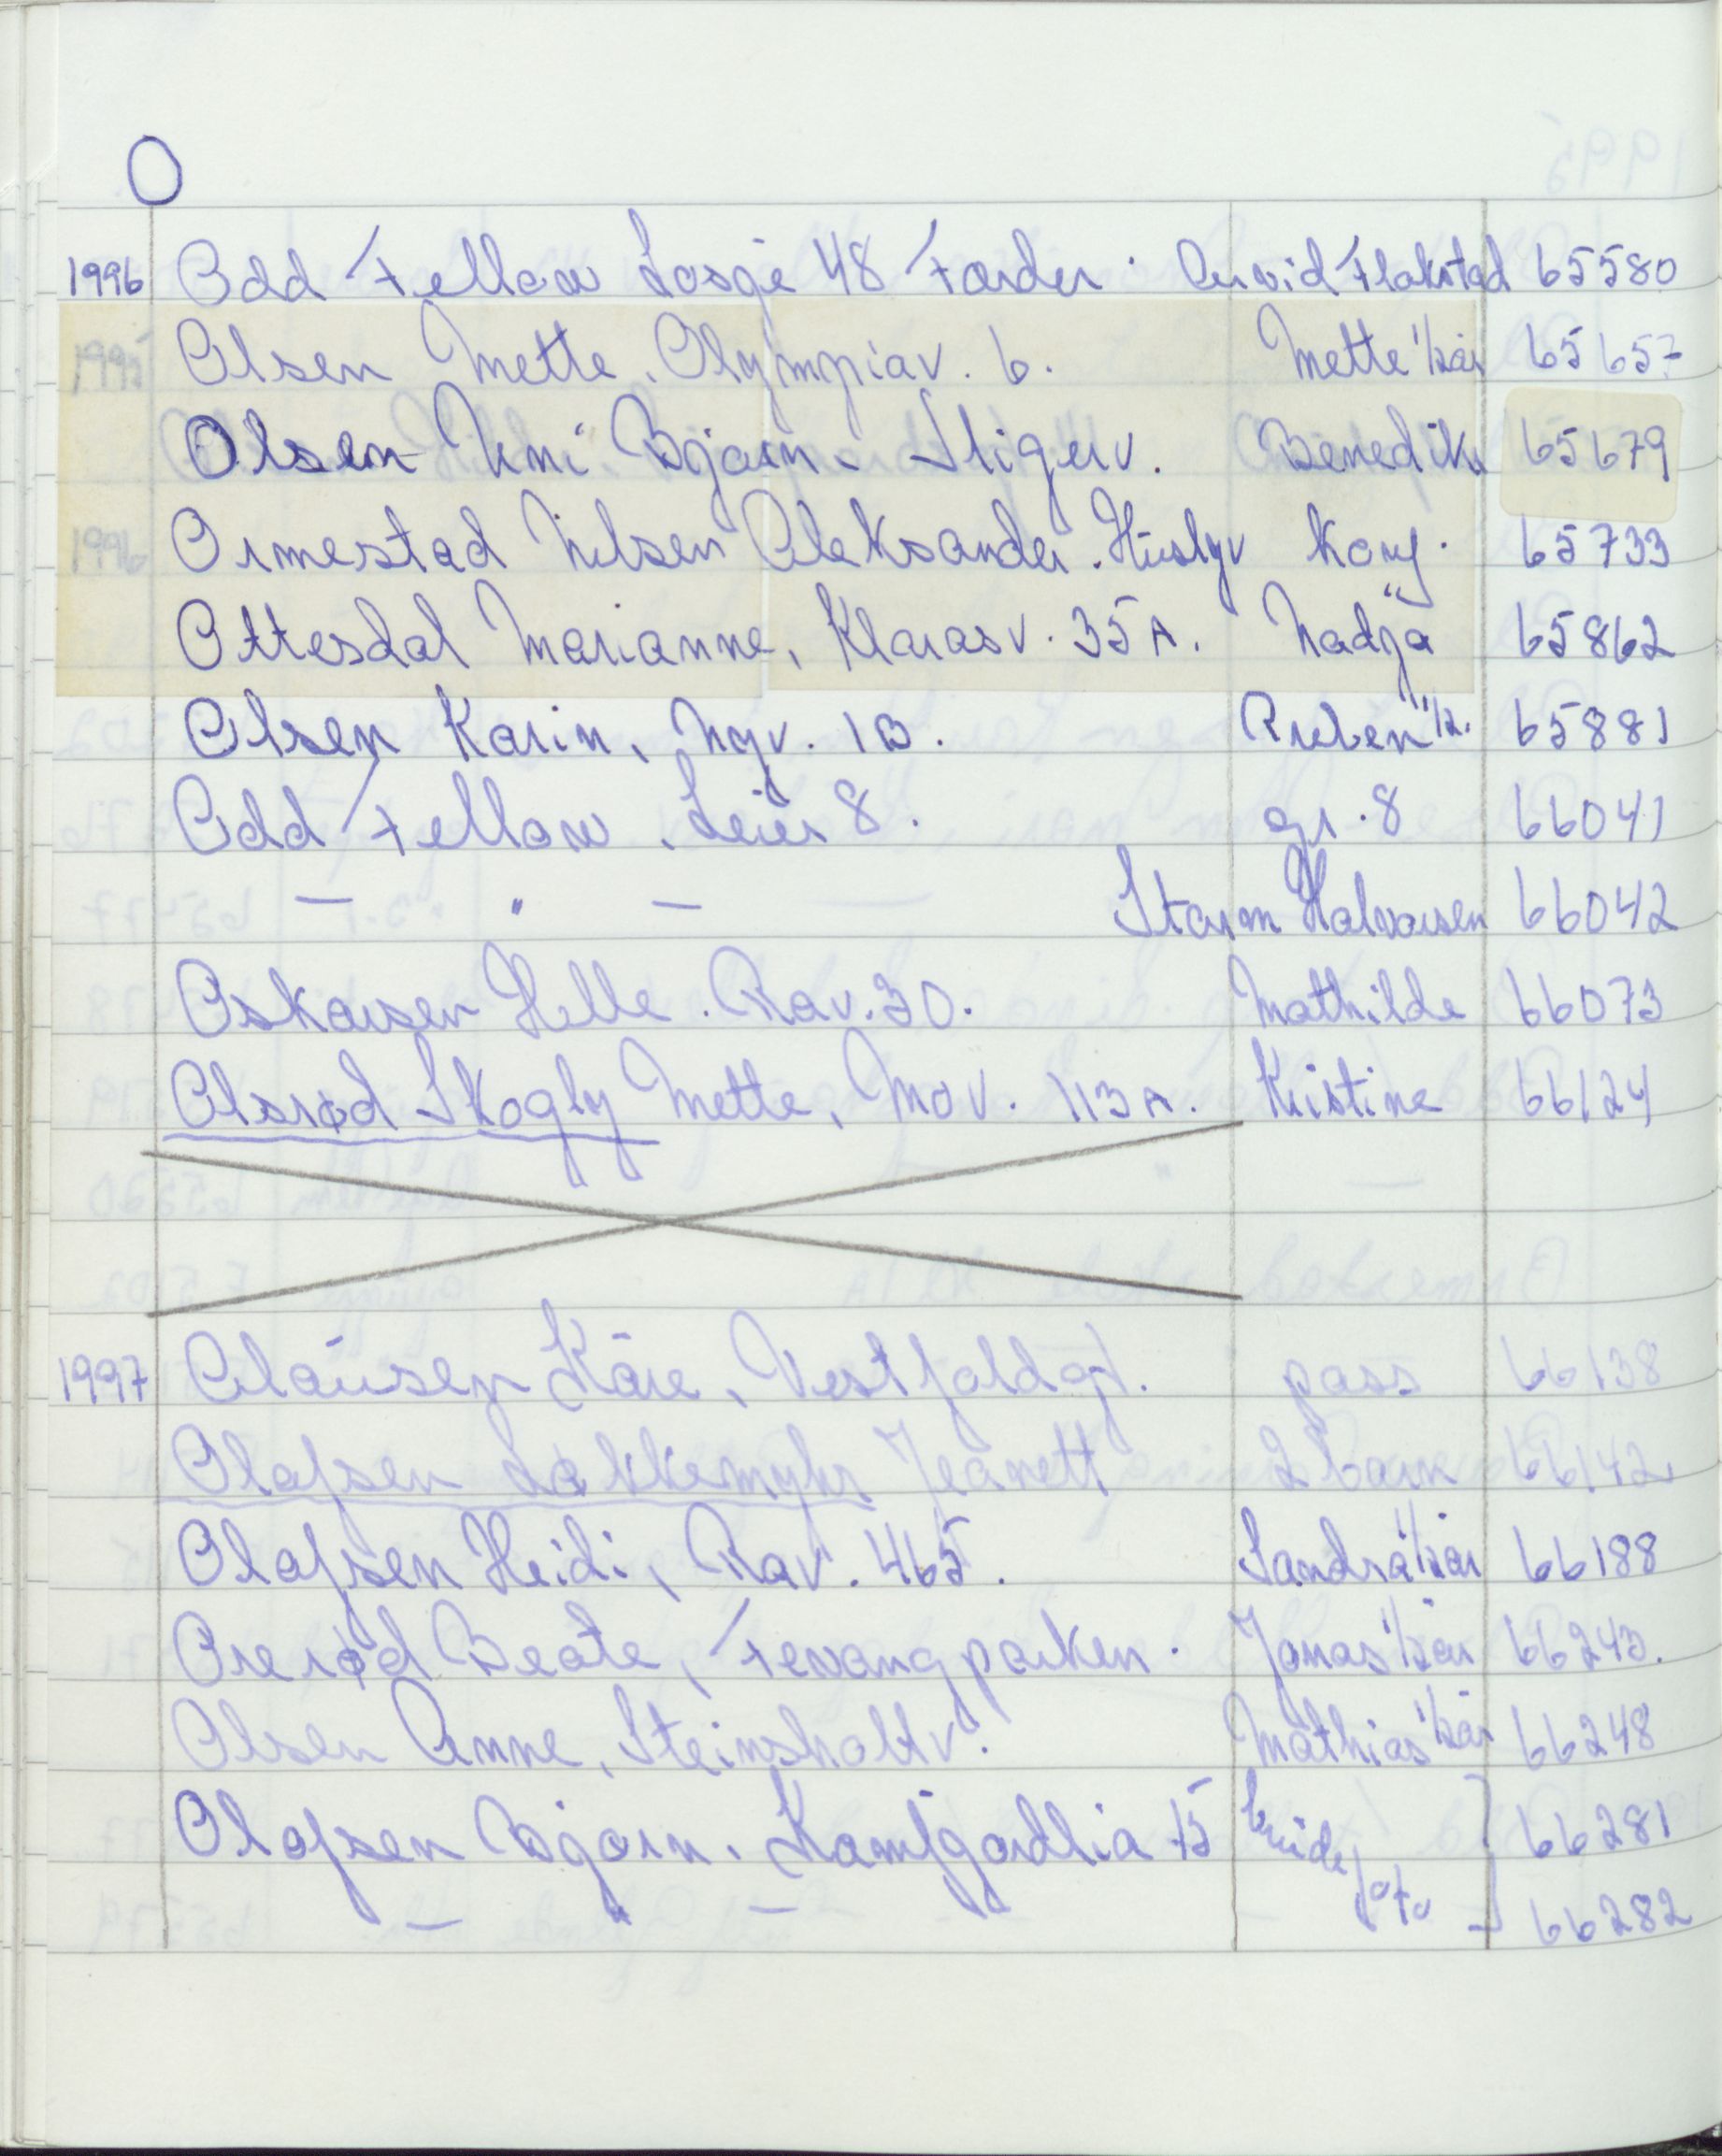 O
1996 Odd Fellow Losje 48 Færder. Arvid Flakstad 65580
1995 Olsen Mette, Olympiav. 6. Mette 1/2 år 65657
Olsen Unni Bjørn, Stigerv. Benedikt 65679
1996 Ormestad Nilsen Aleksander. Konf. 65733
Ottesdal Marianne, Klarasv. 35 A. Nadja 65862
Olsen Karin, Nyv. 1B. Ruben 1/2. 65881
Odd Fellow, Leir 8. gr. 8 66041
— " — Storm Halvorsen 66042
Oskarsen Helle. Rav. 30. Mathilde 66073
Olsrød Skogly Mette, Mov. 113 A. Kristine 66124
1997 Olaussen Kåre, Vestfoldgt. pass 66138
Olafsen Løkkemyhr Jeanett 2 barn 66142
Olafsen Heidi, Rav. 465. Sandra 1/2 år 66188
Orerød Beate, Fevangparken. Jonas 1/2 år 66243.
Olsen Anne, Steinsholtv. Mathias 1/2 år 66248
Olafsen Bjørn. Kamfjordlia 75 brude 66281
— " — foto — 66282